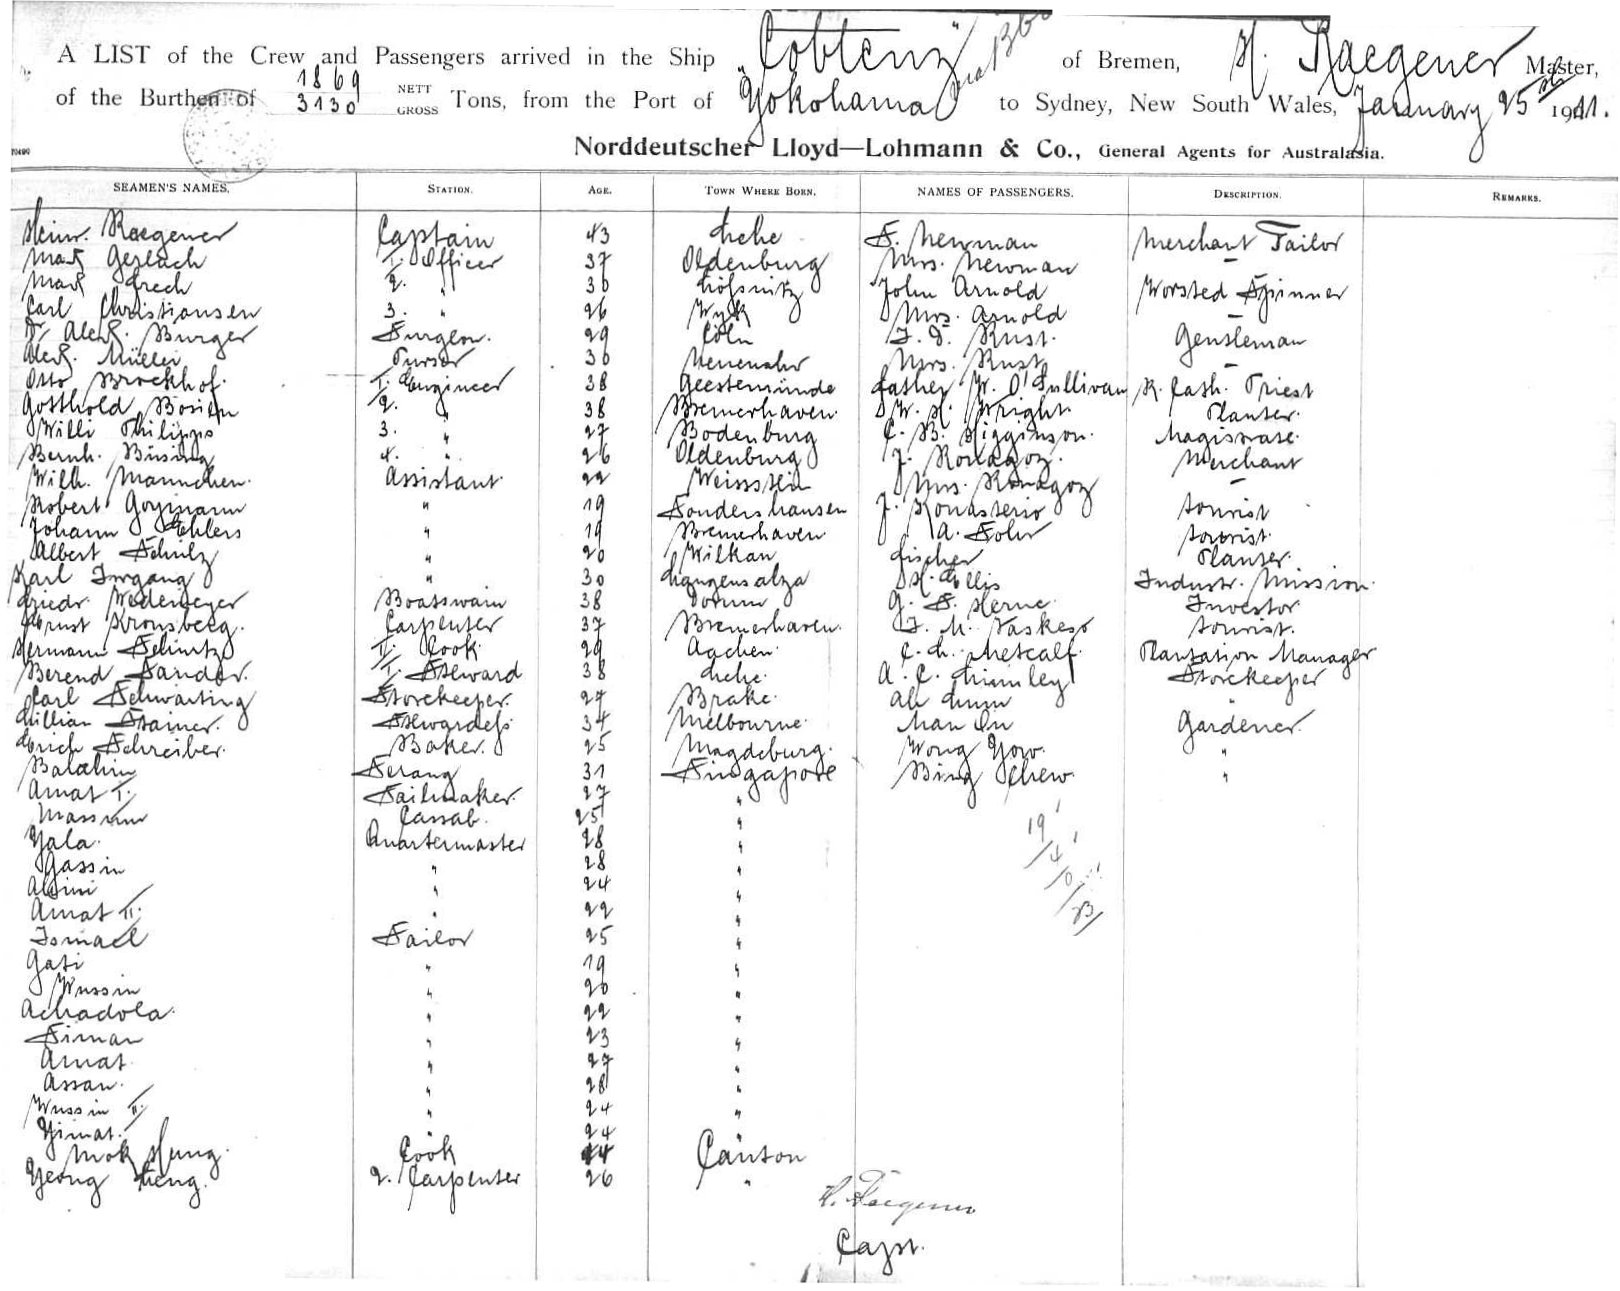 A LIST of the Crew and Passengers arrived in the Ship "Coblenz" of Bremen, H. Raegener Master,
of the Burthen of 1869 3130 NETT GROSS Tons, from the Port of Yokohama to Sydney, New South Wales, January 25th 1911.
Norddeutscher Lloyd—Lohmann & Co., General Agents for Australasia.
SEAMEN'S NAMES. STATION. AGE. TOWN WHERE BORN. NAMES OF PASSENGERS. DESCRIPTION. REMARKS.
Heinr. Raegener Captain 43 Lehe S. Newman Merchant Tailor
Max Gerlach I. Officer 37 Oldenburg Mrs. Newman –
Max Grech 2. " 36 Lössnitz John Arnold Worsted Spinner
Carl Christiansen 3. " 26 Wyk Mrs. Arnold –
Dr. Alex. Burger Surgeon. 29 Cöln Rust. Gentleman
Alex. Müller Purser 36 Neuenahr Mrs. Rust –
Otto Brockhof. I. Engineer 38 Geestemünde Father W. O'Sullivan R. Cath. Priest
Gotthold 2. " 38 Bremerhaven. W. H. Wright Planter.
Willi Philipps 3. " 27 Bodenburg C. B. Higginson. Magistrate.
Bernh. Büsing 4. " 26 Oldenburg J. Merchant
Wilh. Mannchen. Assistant 22 Weissstein Mrs. –
Robert " 19 Sondershausen J. tourist
Johann Ehlers " 19 Bremerhaven A. Sohr tourist.
Albert Schulz " 20 Wilkau Fischer Planter.
Karl Irrgang " 30 Langensalza H. Ellis Industr. Mission.
Friedr. Wedemeyer Boatswain 38 Dorum G. S. Herne. Investor
Ernst Kronsberg. Carpenter 37 Bremerhaven. tourist.
Hermann Schmitz I. Cook. 29 Aachen. C. L. Metcalf. Plantation Manager
Berend Sander. I. Steward 38 Lehe. A. C. Lumley Storekeeper
Carl Schwarting Storekeeper. 27 Brake. Ah Lumm "
Lillian Stainer. Stewardess 34 Melbourne. Man On Gardener.
Erich Schreiber. Baker. 25 Magdeburg. Wong Yow. "
Serang 31 Singapore Bing Chew. "
Amat I. Sailmaker. 27 "
Cassab. 25 "
Yala. Quartermaster 28 "
Gassin " 28 "
" 24 "
Amat II. " 22 "
Ismael Sailor 25 "
Gati " 19 "
Wussin " 20 "
Achadola. " 22 "
Siman " 23 "
Amat. " 27 "
Assan. " 28 "
Wussin II. " 24 "
Yimat. " 24 "
Mok Hung. Cook 44 Canton
Yeong Leng. 2. Carpenter 26 "
19/4/0/23/
H. Raegener
Capt.